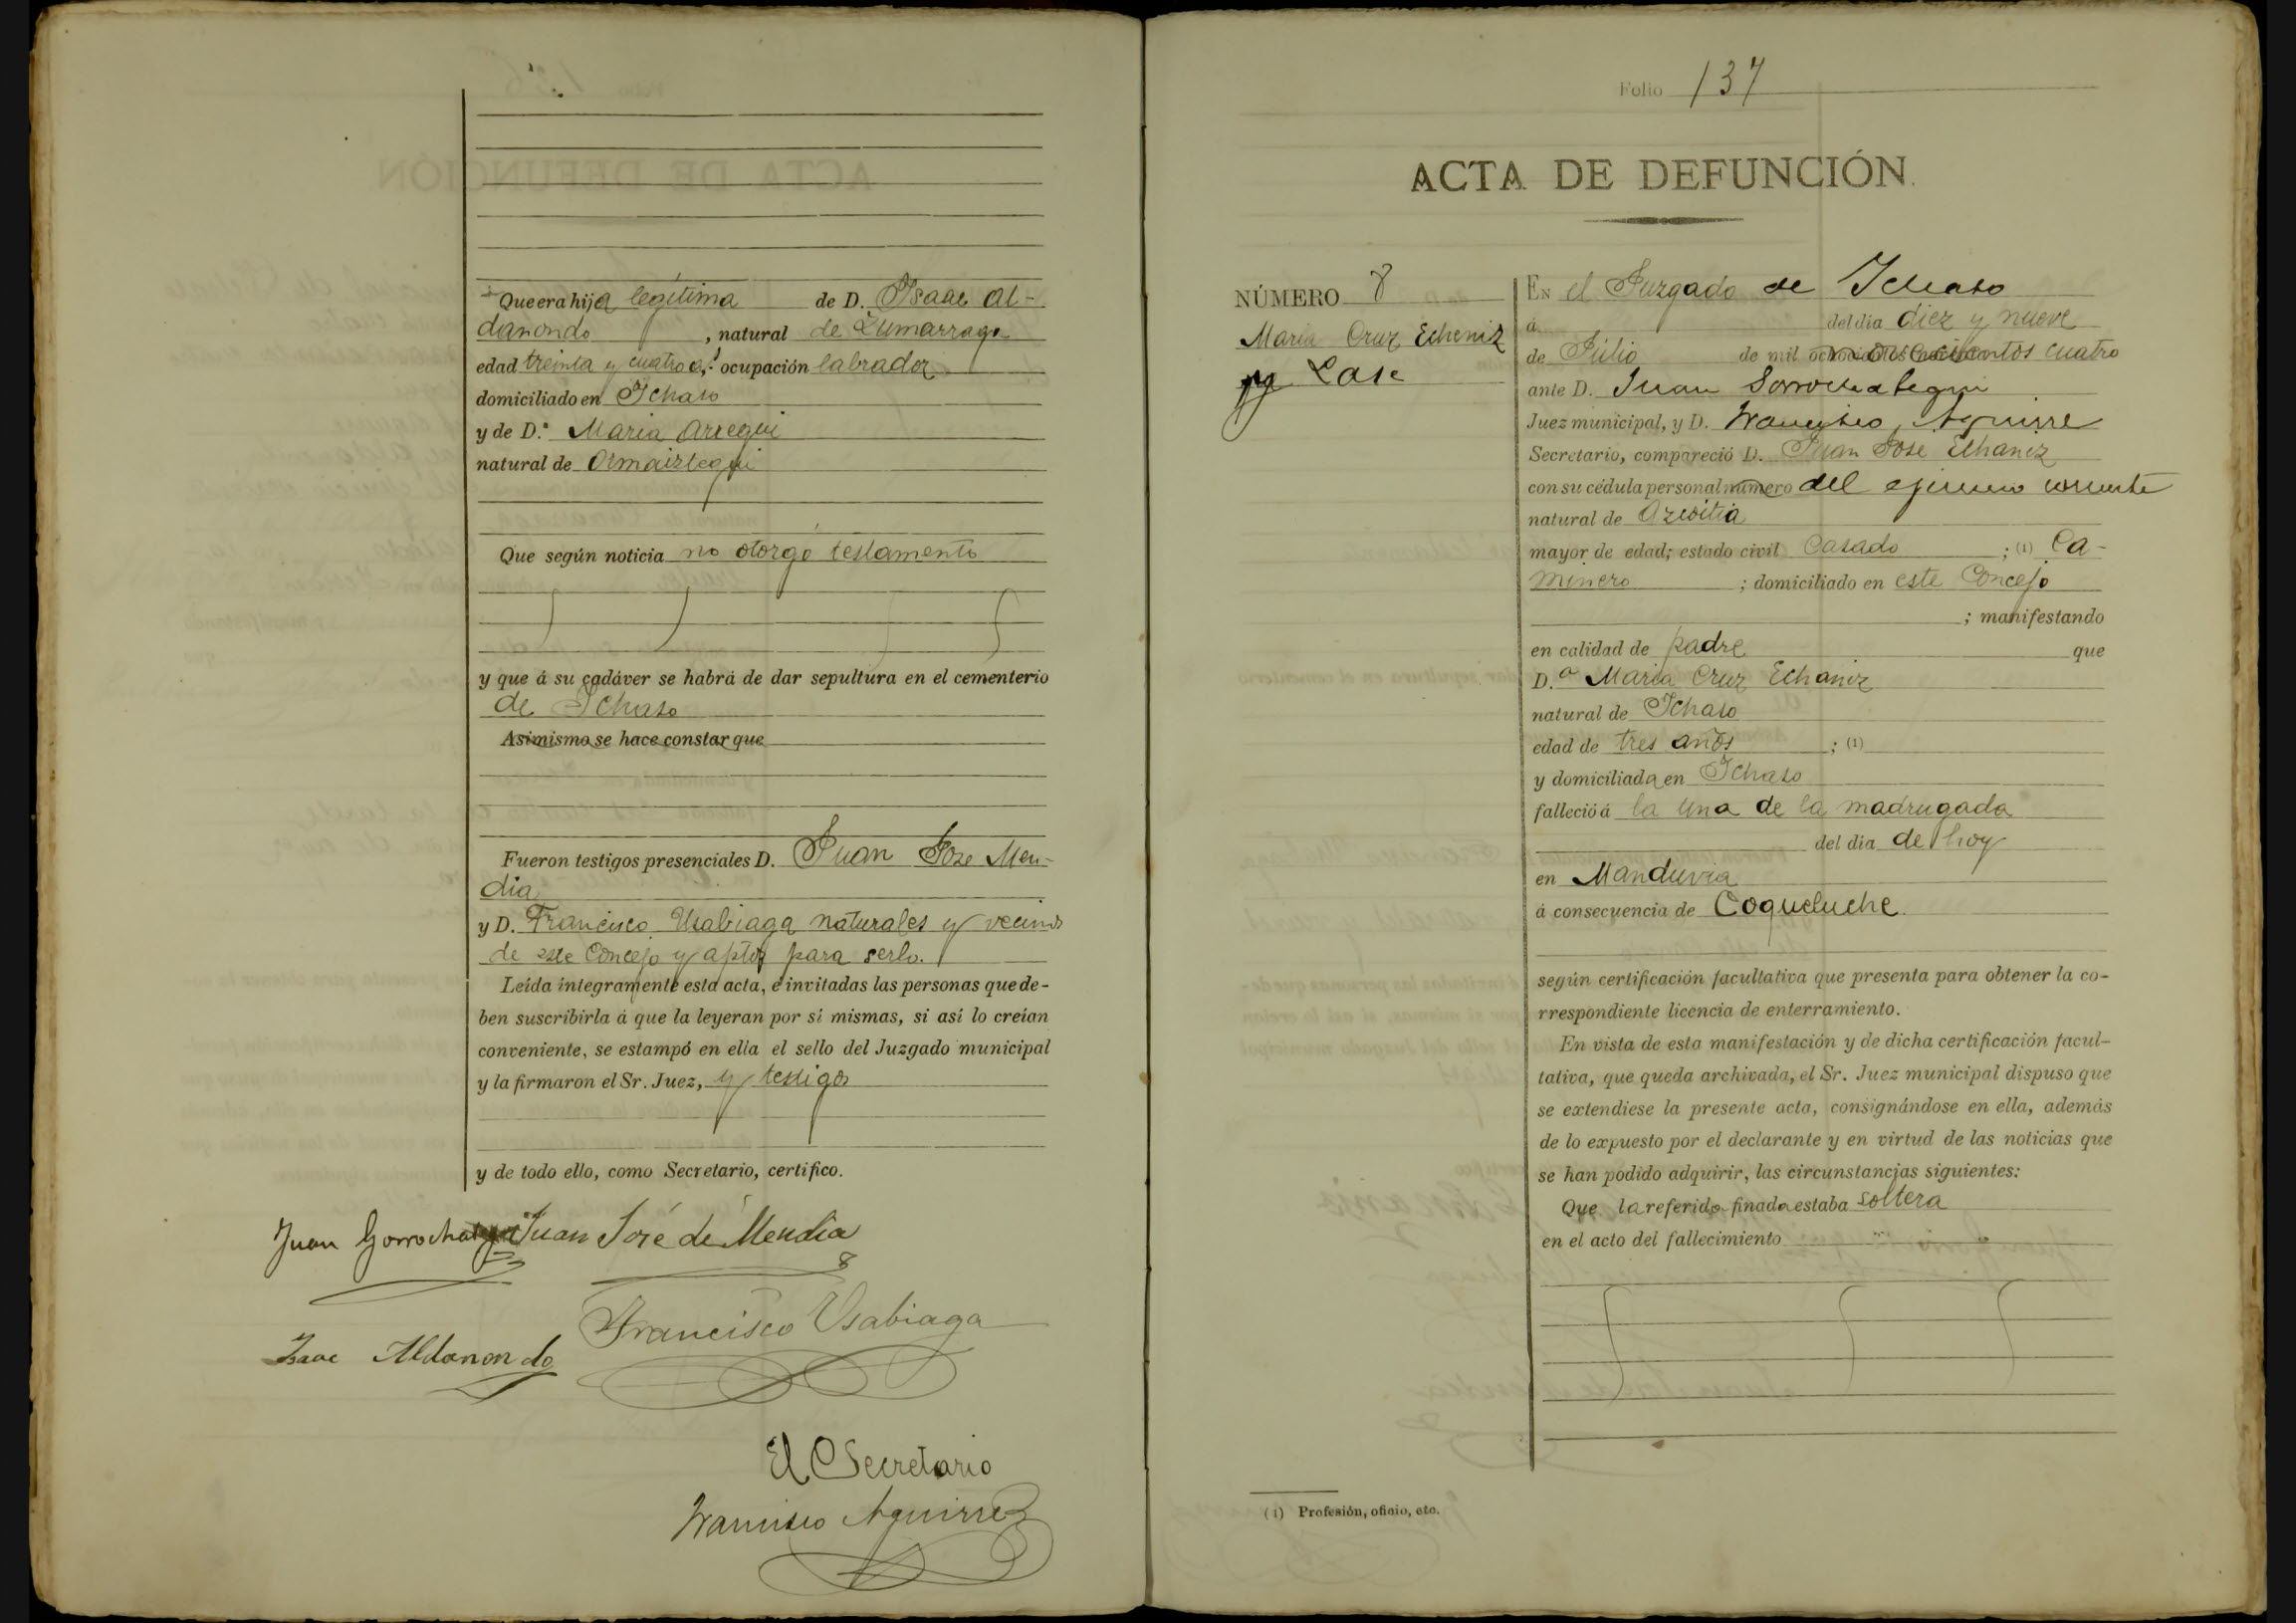 Que era hija legitima de D. Isaac Al-
danondo, natural de Zumarraga
edad treinta y cuatro a.ˢ ocupación labrador
domiciliado en Ichaso
y de D.ª Maria Arregui
natural de Ormaiztegui
Que según noticia no otorgó testamento
y que á su cadáver se habrá de dar sepultura en el cementerio
de Ichaso
Asimismo se hace constar que
Fueron testigos presenciales D. Juan Jose Men-
dia
y D. Francisco Usabiaga naturales y vecinos
de este Concejo y aptos para serlo.
Leída íntegramente esta acta, é invitadas las personas que de-
ben suscribirla á que la leyeran por sí mismas, si así lo creían
conveniente, se estampó en ella el sello del Juzgado municipal
y la firmaron el Sr. Juez, y testigos
y de todo ello, como Secretario, certifico.
Juan Juan José de Mendia
Francisco Usabiaga
Isaac Aldanondo
El Secretario
Francisco Aguirre
Folio 137
ACTA DE DEFUNCIÓN.
NÚMERO 8
Maria Cruz Echeniz
y Lase
EN el Juzgado de Ichaso
á del dia diez y nueve
de Julio de mil novecientos cuatro
ante D. Juan Gorrochategui
Juez municipal, y D. Francisco Aguirre
Secretario, compareció D. Juan Jose Echaniz
con su cédula personal número del ejercicio corriente
natural de Azcoitia
mayor de edad; estado civil Casado ; (1) Ca-
minero ; domiciliado en este Concejo
; manifestando
en calidad de padre que
D.ª Maria Cruz Echaniz
natural de Ichaso
edad de tres años ; (1)
y domiciliada en Ichaso
falleció á la una de la madrugada
del dia de hoy
en Manduvia
á consecuencia de Coqueluche
según certificación facultativa que presenta para obtener la co-
rrespondiente licencia de enterramiento.
En vista de esta manifestación y de dicha certificación facul-
tativa, que queda archivada, el Sr. Juez municipal dispuso que
se extendiese la presente acta, consignándose en ella, además
de lo expuesto por el declarante y en virtud de las noticias que
se han podido adquirir, las circunstancias siguientes:
Que la referida finada estaba soltera
en el acto del fallecimiento
(1) Profesión, oficio, etc.